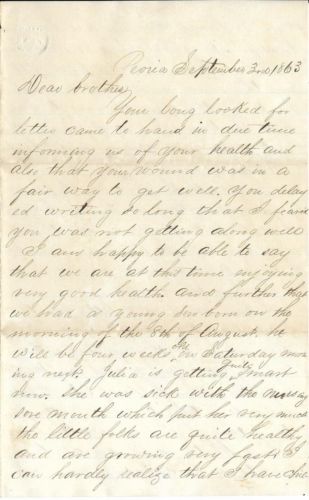 Peoria September 3rd 1863
Dear brother
Your long looked for
letter came to hand in due time
informing us of your health and
also that your wound was in a
fair way to get well. You delay
ed writing so long that I feared
you was not getting along well
I am happy to be able to say
that we are at this time enjoying
very good health and further that
we had a young son born on the
morning of the 8th of August. he
will be four weeks old on Saturday mor
ning next. Julia is getting quite smart
now. She was sick with the nursing
sore mouth which put her very much
the little folks are quite healthy
and are growing very fast. I
can hardly realize that I have